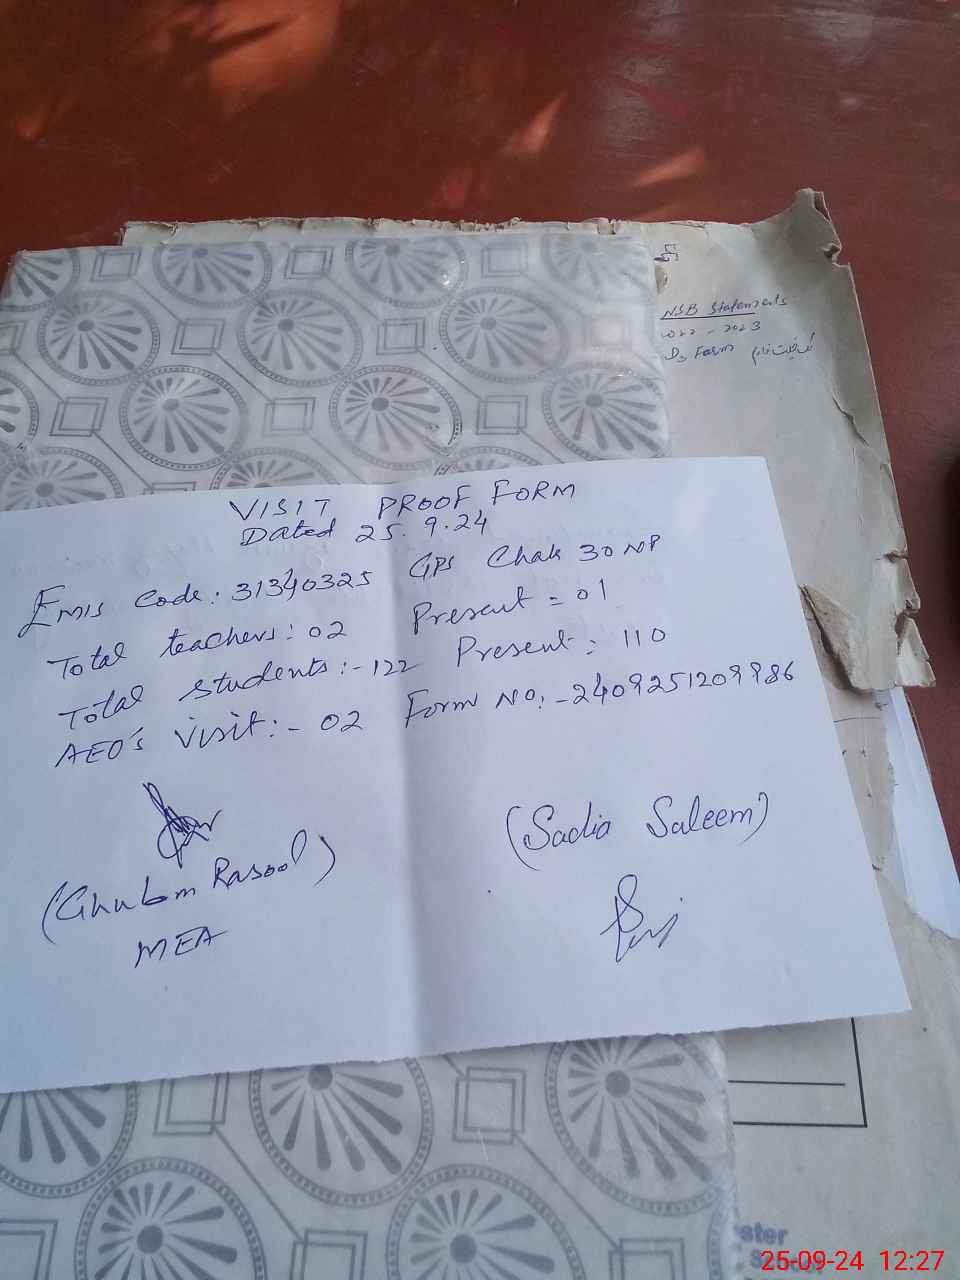 NSB Statements
2022 - 2023
Ds Form
VISIT PROOF FORM
Dated 25.9.24
Emis Code: 31340325 GPS Chak 30 NP
Total teachers: 02 Present = 01
Total students:- 122 Present: 110
AEO's Visit:- 02 Form No:- 2409251209986
(Ghulam Rasool)
MEA
(Sadia Saleem)
School
25-09-24 12:27